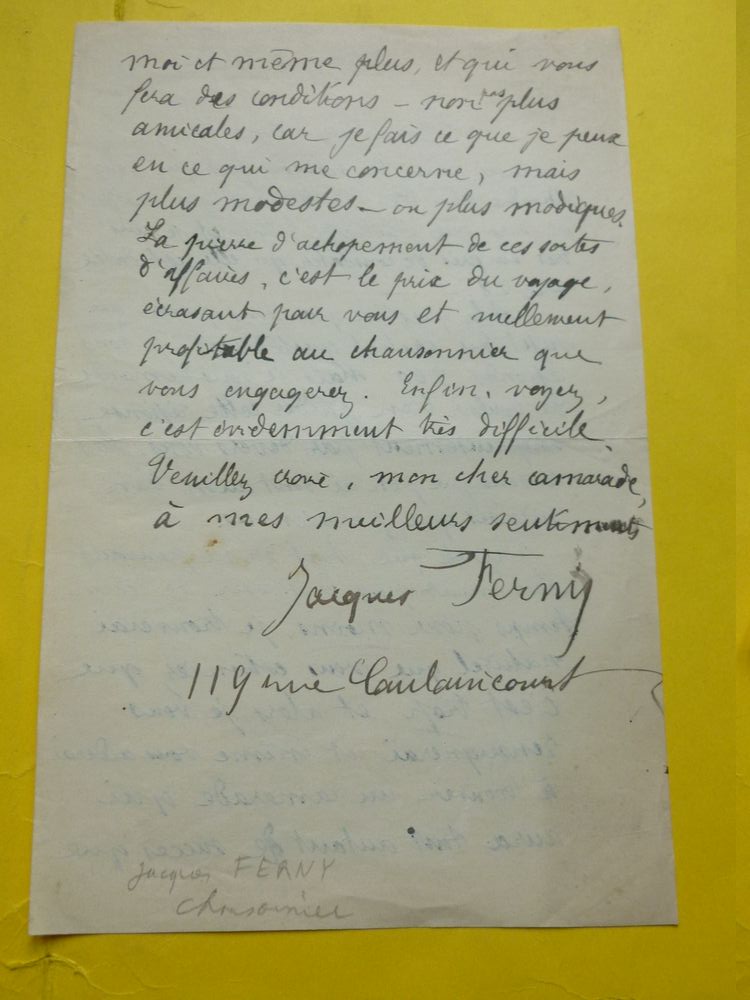 moi et même plus, et qui vous
fera des conditions – non pas plus
amicales, car je fais ce que je peux
en ce qui me concerne, mais
plus modestes – ou plus modiques.
La pierre d'achopement de ces sortes
d'affaires, c'est le prix du voyage,
écrasant pour vous et nullement
profitable au chansonnier que
vous engagerez. Enfin, voyez,
c'est évidemment très difficile.
Veuillez croire, mon cher camarade,
à mes meilleurs sentiments
Jacques Ferny
119 rue Caulaincourt
Jacques FERNY
chansonnier